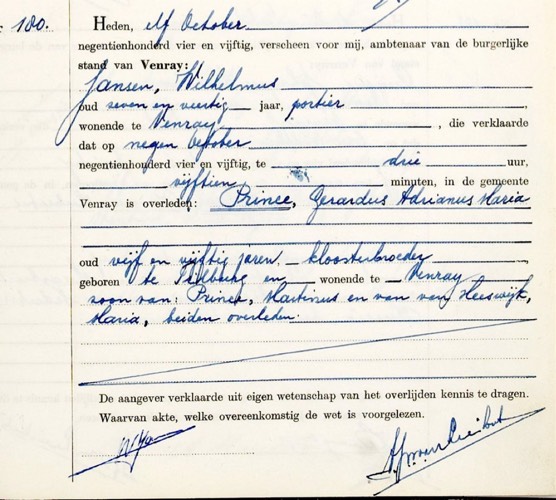 180.
Heden, elf October
negentienhonderd vier en vijftig, verscheen voor mij, ambtenaar van de burgerlijke
stand van Venray:
Jansen, Wilhelmus
oud zeven en veertig jaar, portier,
wonende te Venray, die verklaarde
dat op negen October
negentienhonderd vier en vijftig, te drie uur,
vijftien minuten, in de gemeente
Venray is overleden: Prince, Gerardus Adrianus Maria
oud vijf en vijftig jaren, kloosterbroeder,
geboren te Tilburg en wonende te Venray
zoon van: Prince, Martinus en van van Heeswijk,
Maria, beiden overleden.
De aangever verklaarde uit eigen wetenschap van het overlijden kennis te dragen.
Waarvan akte, welke overeenkomstig de wet is voorgelezen.